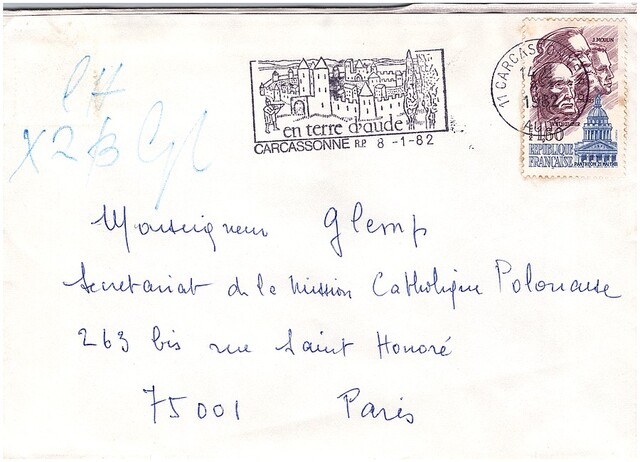 J. MOULIN
11 CARCASSONNE
14
1982
1,60
RÉPUBLIQUE
FRANÇAISE
PANTHEON 21 MAI 1981
en terre d'aude
CARCASSONNE R.P. 8-1-82
Monseigneur Glemp
Secretariat de la Mission Catholique Polonaise
263 bis rue Saint Honoré
75001 Paris